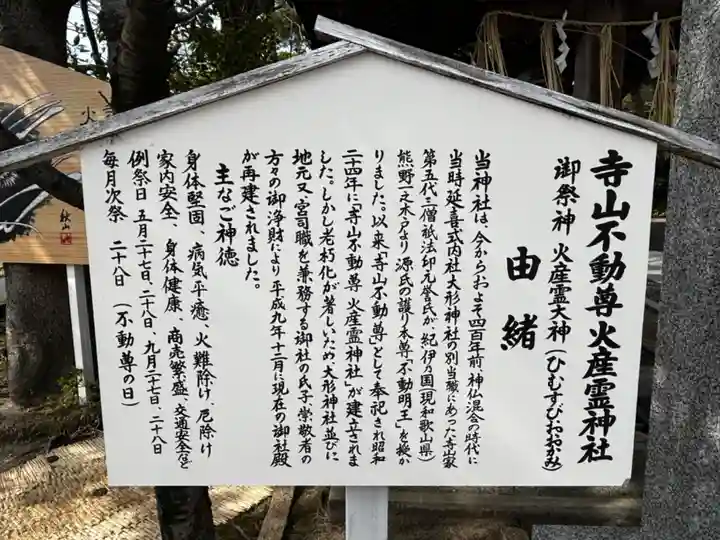 寺山不動尊火産霊神社
御祭神 火産霊大神(ひむすびおおかみ)
由緒
当神社は、今からおよそ四百年前、神仏混合の時代に
当時延喜式内社大形神社の別当職にあった寺山家
第五代三僧祇法印元誉氏が紀伊乃国(現和歌山県)
熊野一之木戸より源氏の護り本尊「不動明王」を授か
りました。以来「寺山不動尊」として奉祀され昭和
二十四年に「寺山不動尊 火産霊神社」が建立されま
した。しかし老朽化が著しいため大形神社並びに
地元又宮司職を兼務する御社の氏子崇敬者の
方々の御浄財により平成九年十二月に現在の御社殿
が再建されました。
主なご神徳
身体堅固、病気平癒、火難除け、厄除け
家内安全、身体健康、商売繁盛、交通安全など
例祭日 五月二十七日、二十八日、九月二十七日、二十八日
毎月次祭 二十八日(不動尊の日)
火
秋山